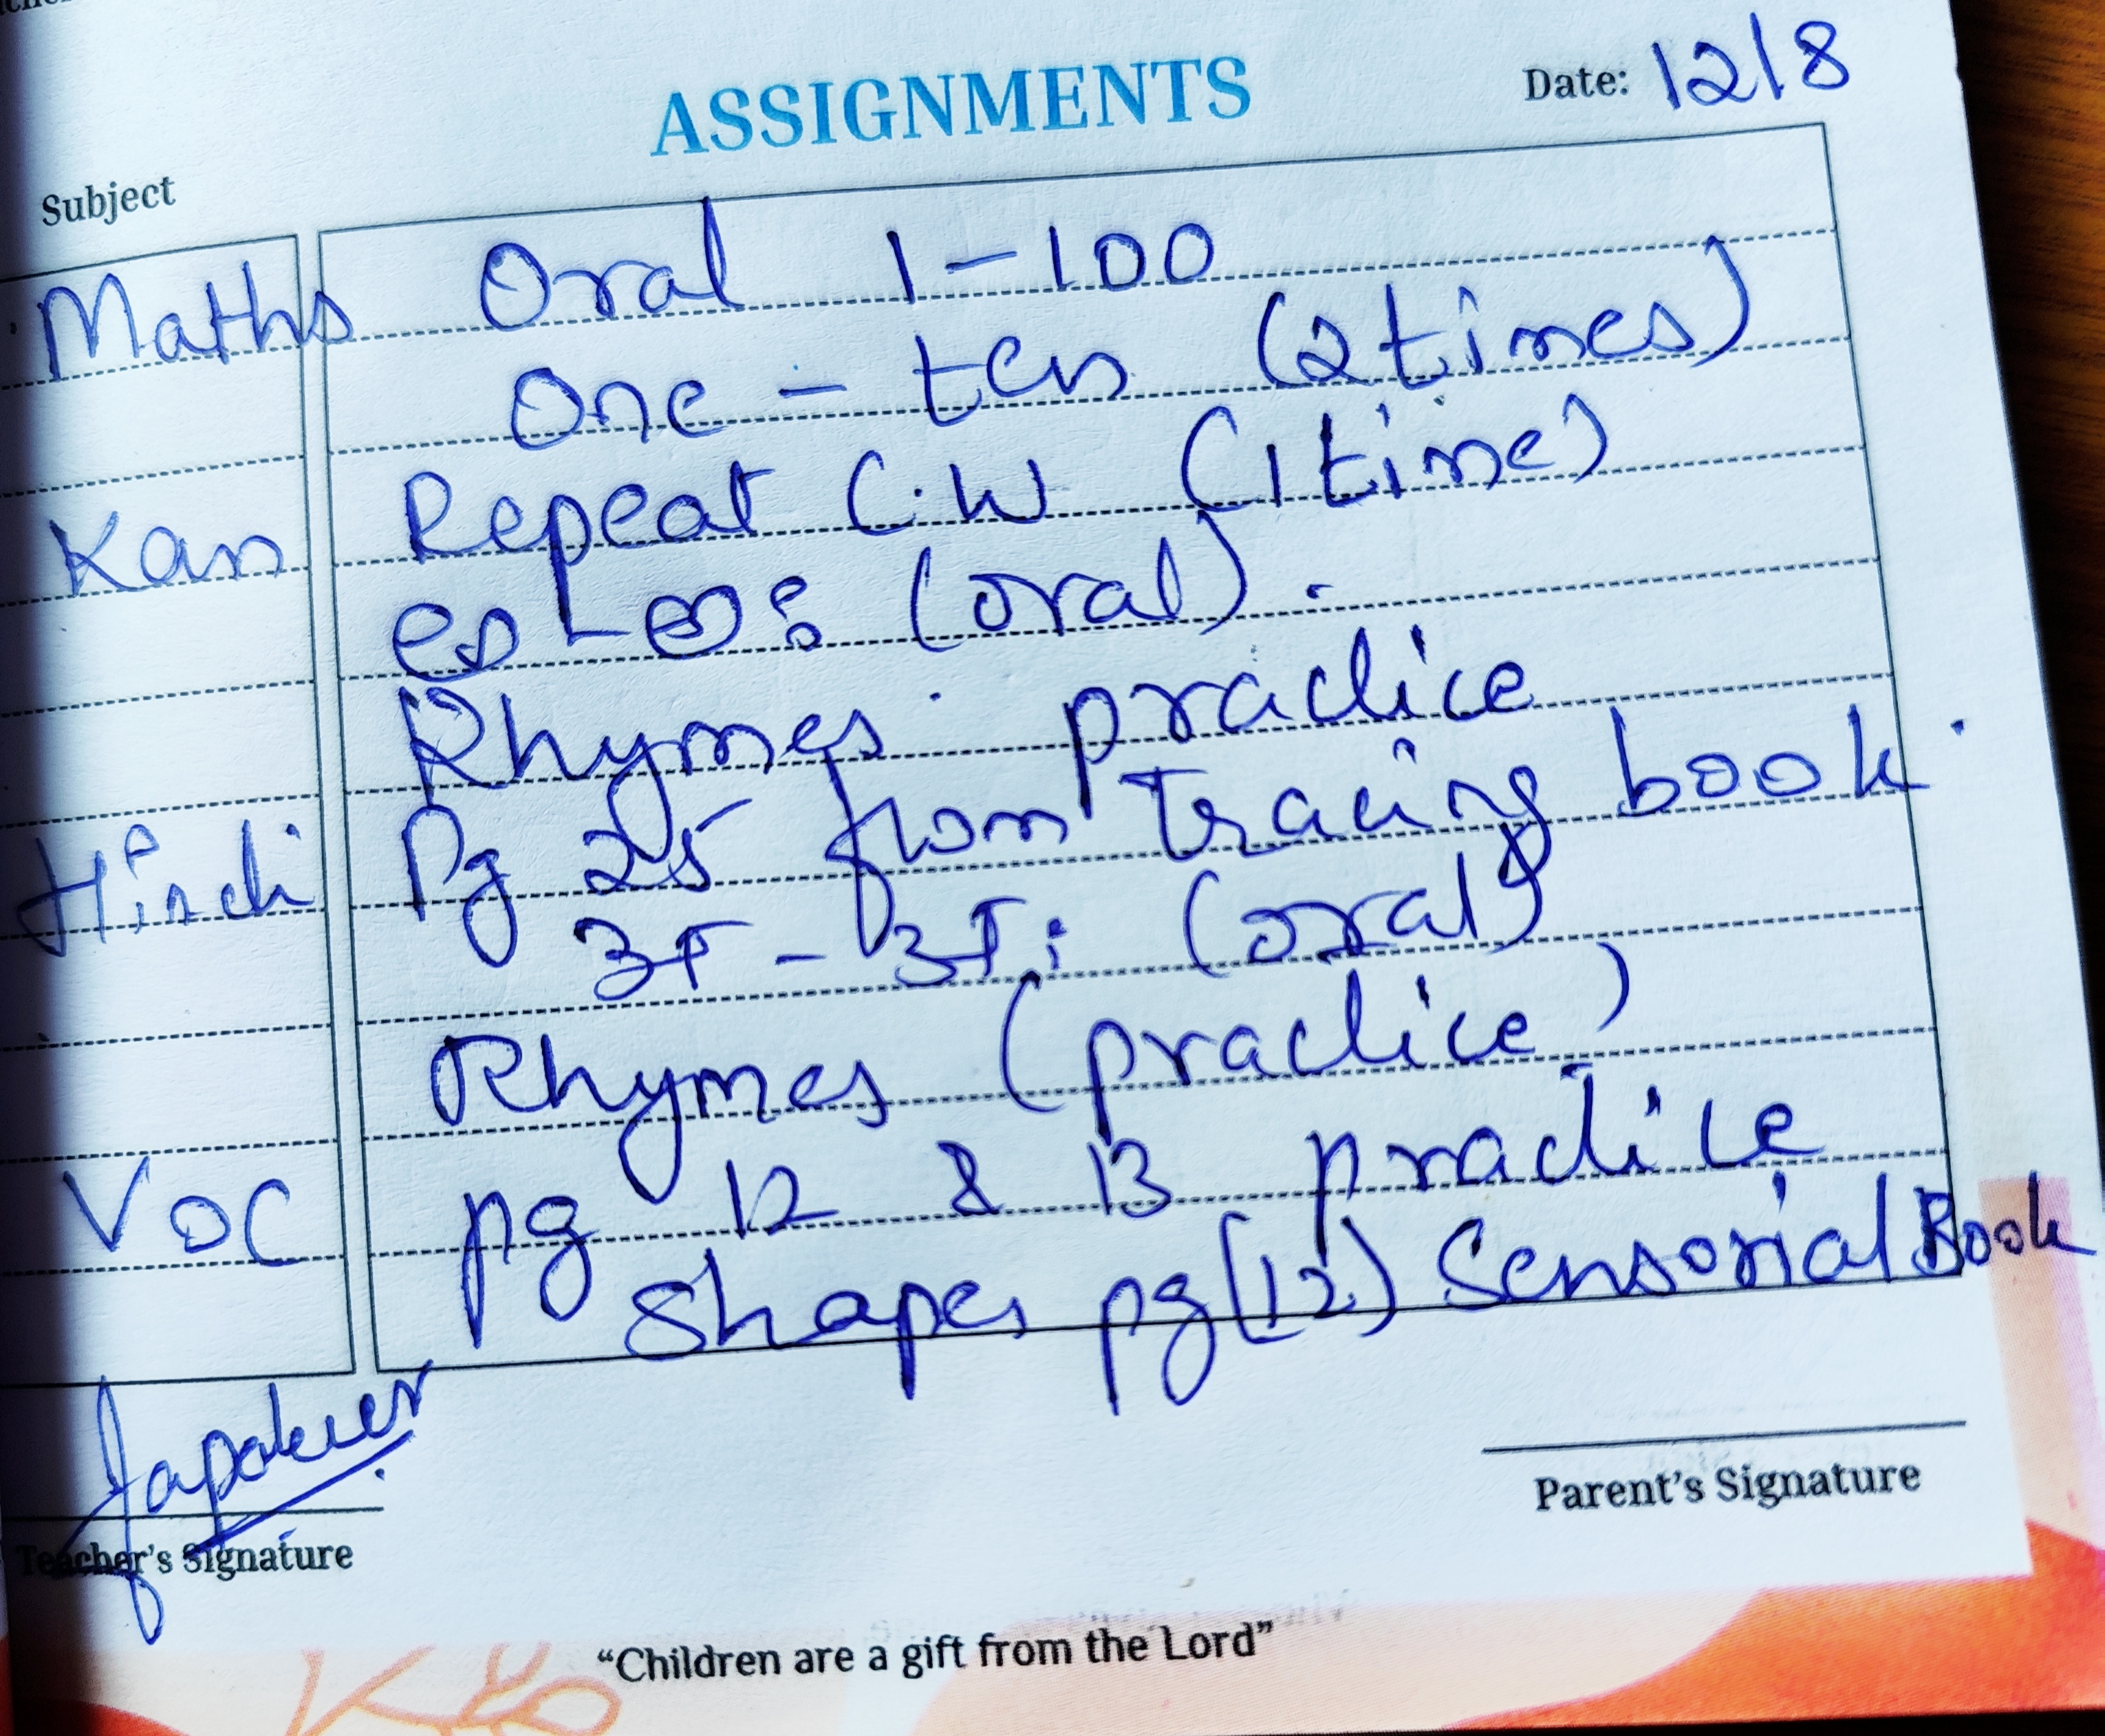 ASSIGNMENTS
Date: 12/8
Subject
Maths Oral 1-100
One - ten (2 times)
Kan Repeat C.W (1 time)
ಅ - ಅಃ (oral).
Rhymes practice
Hindi Pg 25 from Tracing book.
अ - अः (oral)
Rhymes (practice)
VOC pg 12 & 13 practice
Shapes pg (12) Sensorial Book
Teacher's Signature
Parent's Signature
“Children are a gift from the Lord”